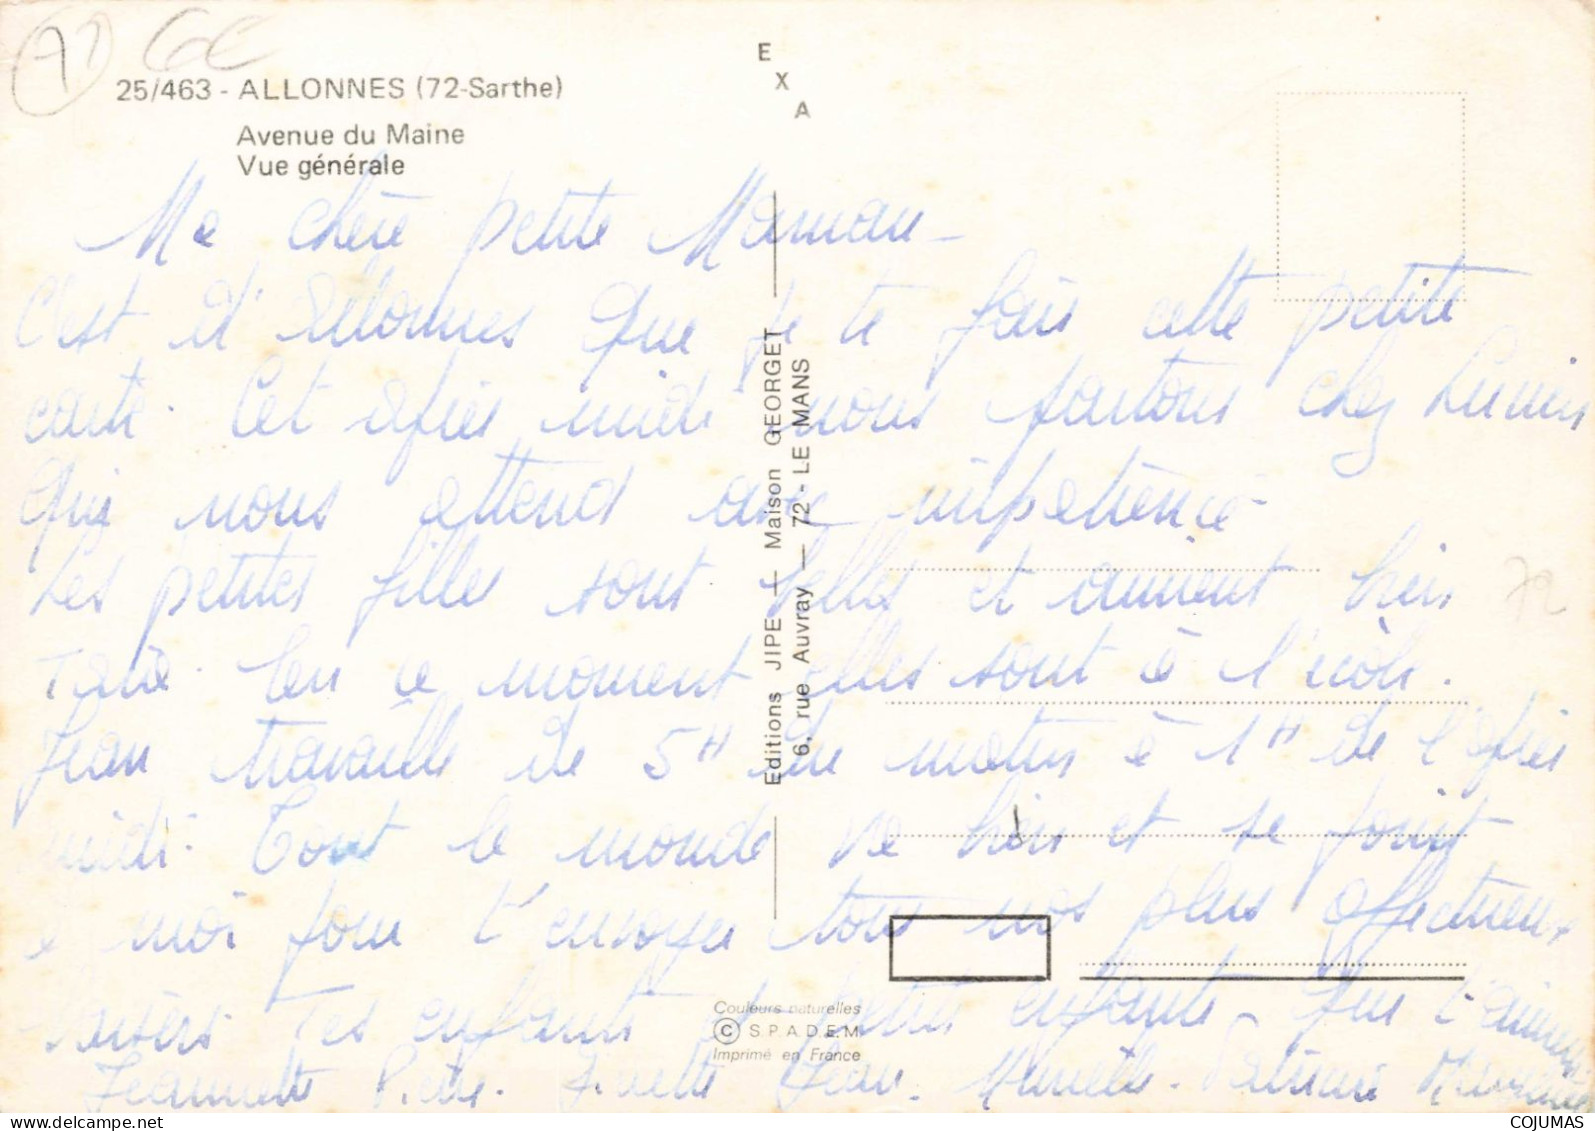 25/463 - ALLONNES (72-Sarthe)
Avenue du Maine
Vue générale
E
X
A
Ma chère petite Maman
C'est d' Allonnes que je te fais cette petite
carte. Cet après midi nous partons chez
qui nous attend avec impatience
Les petites filles sont belles et aiment bien
Tata. En ce moment elles sont à l'école.
Jean travaille de 5H du matin à 1H de l'après
midi. Tout le monde va bien et se joint
à moi pour t'envoyer tous nos plus affectueux
baisers. Tes enfants et petits enfants. Que t'aiment
Jeannette Pierre. Ginette Jean. Murielle. Patricia
Editions JIPE — Maison GEORGET
6, rue Auvray — 72 - LE MANS
72
Couleurs naturelles
© S.P.A.D.E.M.
Imprimé en France
COJUMAS